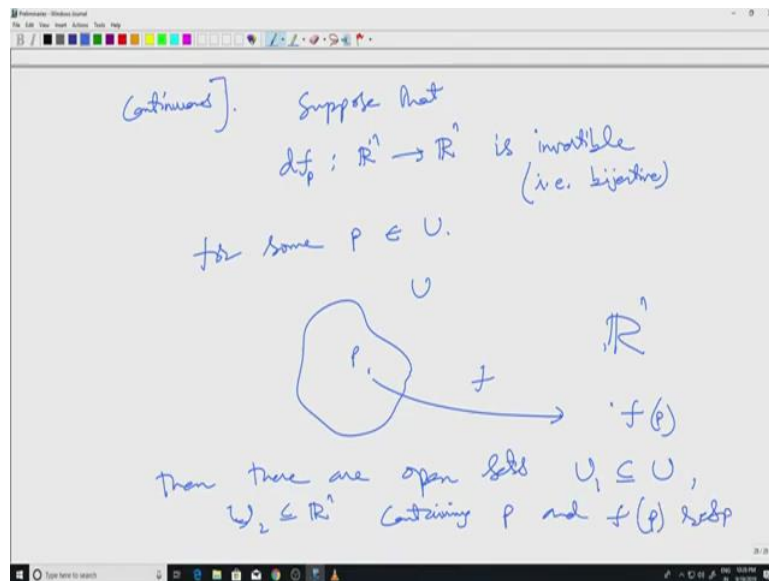 Preliminaries - Windows Journal
File Edit View Insert Actions Tools Help
Continuous]. Suppose that
df_p : ℝⁿ → ℝⁿ is invertible
(i.e. bijective)
for some p ∈ U.
U
ℝⁿ
p
f
f(p)
then there are open sets U₁ ⊆ U,
U₂ ⊆ ℝⁿ containing p and f(p) resp
Type here to search